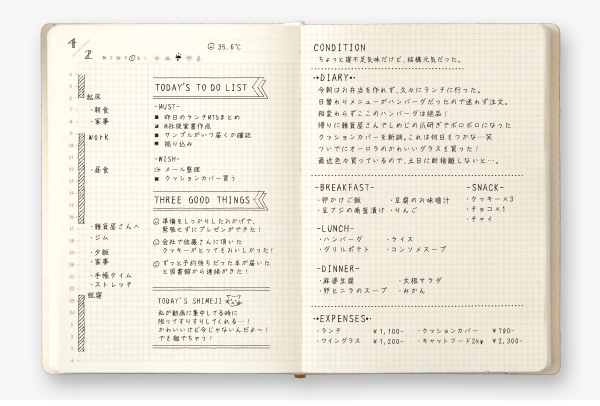 4/2
M T W T F S S
35.6℃
起床
・朝食
・家事
work
・昼食
・雑貨屋さんへ
・ジム
・夕飯
・家事
・手帳タイム
・ストレッチ
就寝
TODAY'S TO DO LIST
-MUST-
■ 昨日のランチMTGまとめ
H社提案書作成
■ サンプルがいつ届くか確認
■ 振り込み
-WISH-
メール整理
■ クッションカバー買う
THREE GOOD THINGS
準備をしっかりしたおかげで、
緊張せずにプレゼンができた！
会社で佐藤さんに頂いた
クッキーがとってもおいしかった！
ずっと予約待ちだった本が届いた
と図書館から連絡がきた！
TODAY'S SHIMEJI
私が動画に集中してる時に
限ってすりすりしてくれる…！
かわいいけど今じゃないんだよ〜！
でも撫でちゃう！
CONDITION
ちょっと寝不足気味だけど、結構元気だった。
・DIARY・
今朝はお弁当を作れず、久々にランチに行った。
日替わりメニューがハンバーグだったので迷わず注文。
相変わらずここのハンバーグは絶品！
帰りに雑貨屋さんでしめじの爪研ぎでボロボロになった
クッションカバーを新調。これは何日もつかな…笑
ついでにオーロラのかわいいグラスも買った！
最近色々買っているので、土日に断捨離しないと…。
-BREAKFAST-
・卵かけご飯 ・豆腐のお味噌汁
・豆アジの南蛮漬け ・りんご
-SNACK-
・クッキー×3
・チョコ×1
・チャイ
-LUNCH-
・ハンバーグ ・ライス
・グリルポテト ・コンソメスープ
-DINNER-
・麻婆豆腐 ・大根サラダ
・卵とニラのスープ ・みかん
・EXPENSES・
・ランチ ￥1,100- ・クッションカバー ￥780-
・ワイングラス ￥1,200- ・キャットフード2kg ￥2,300-